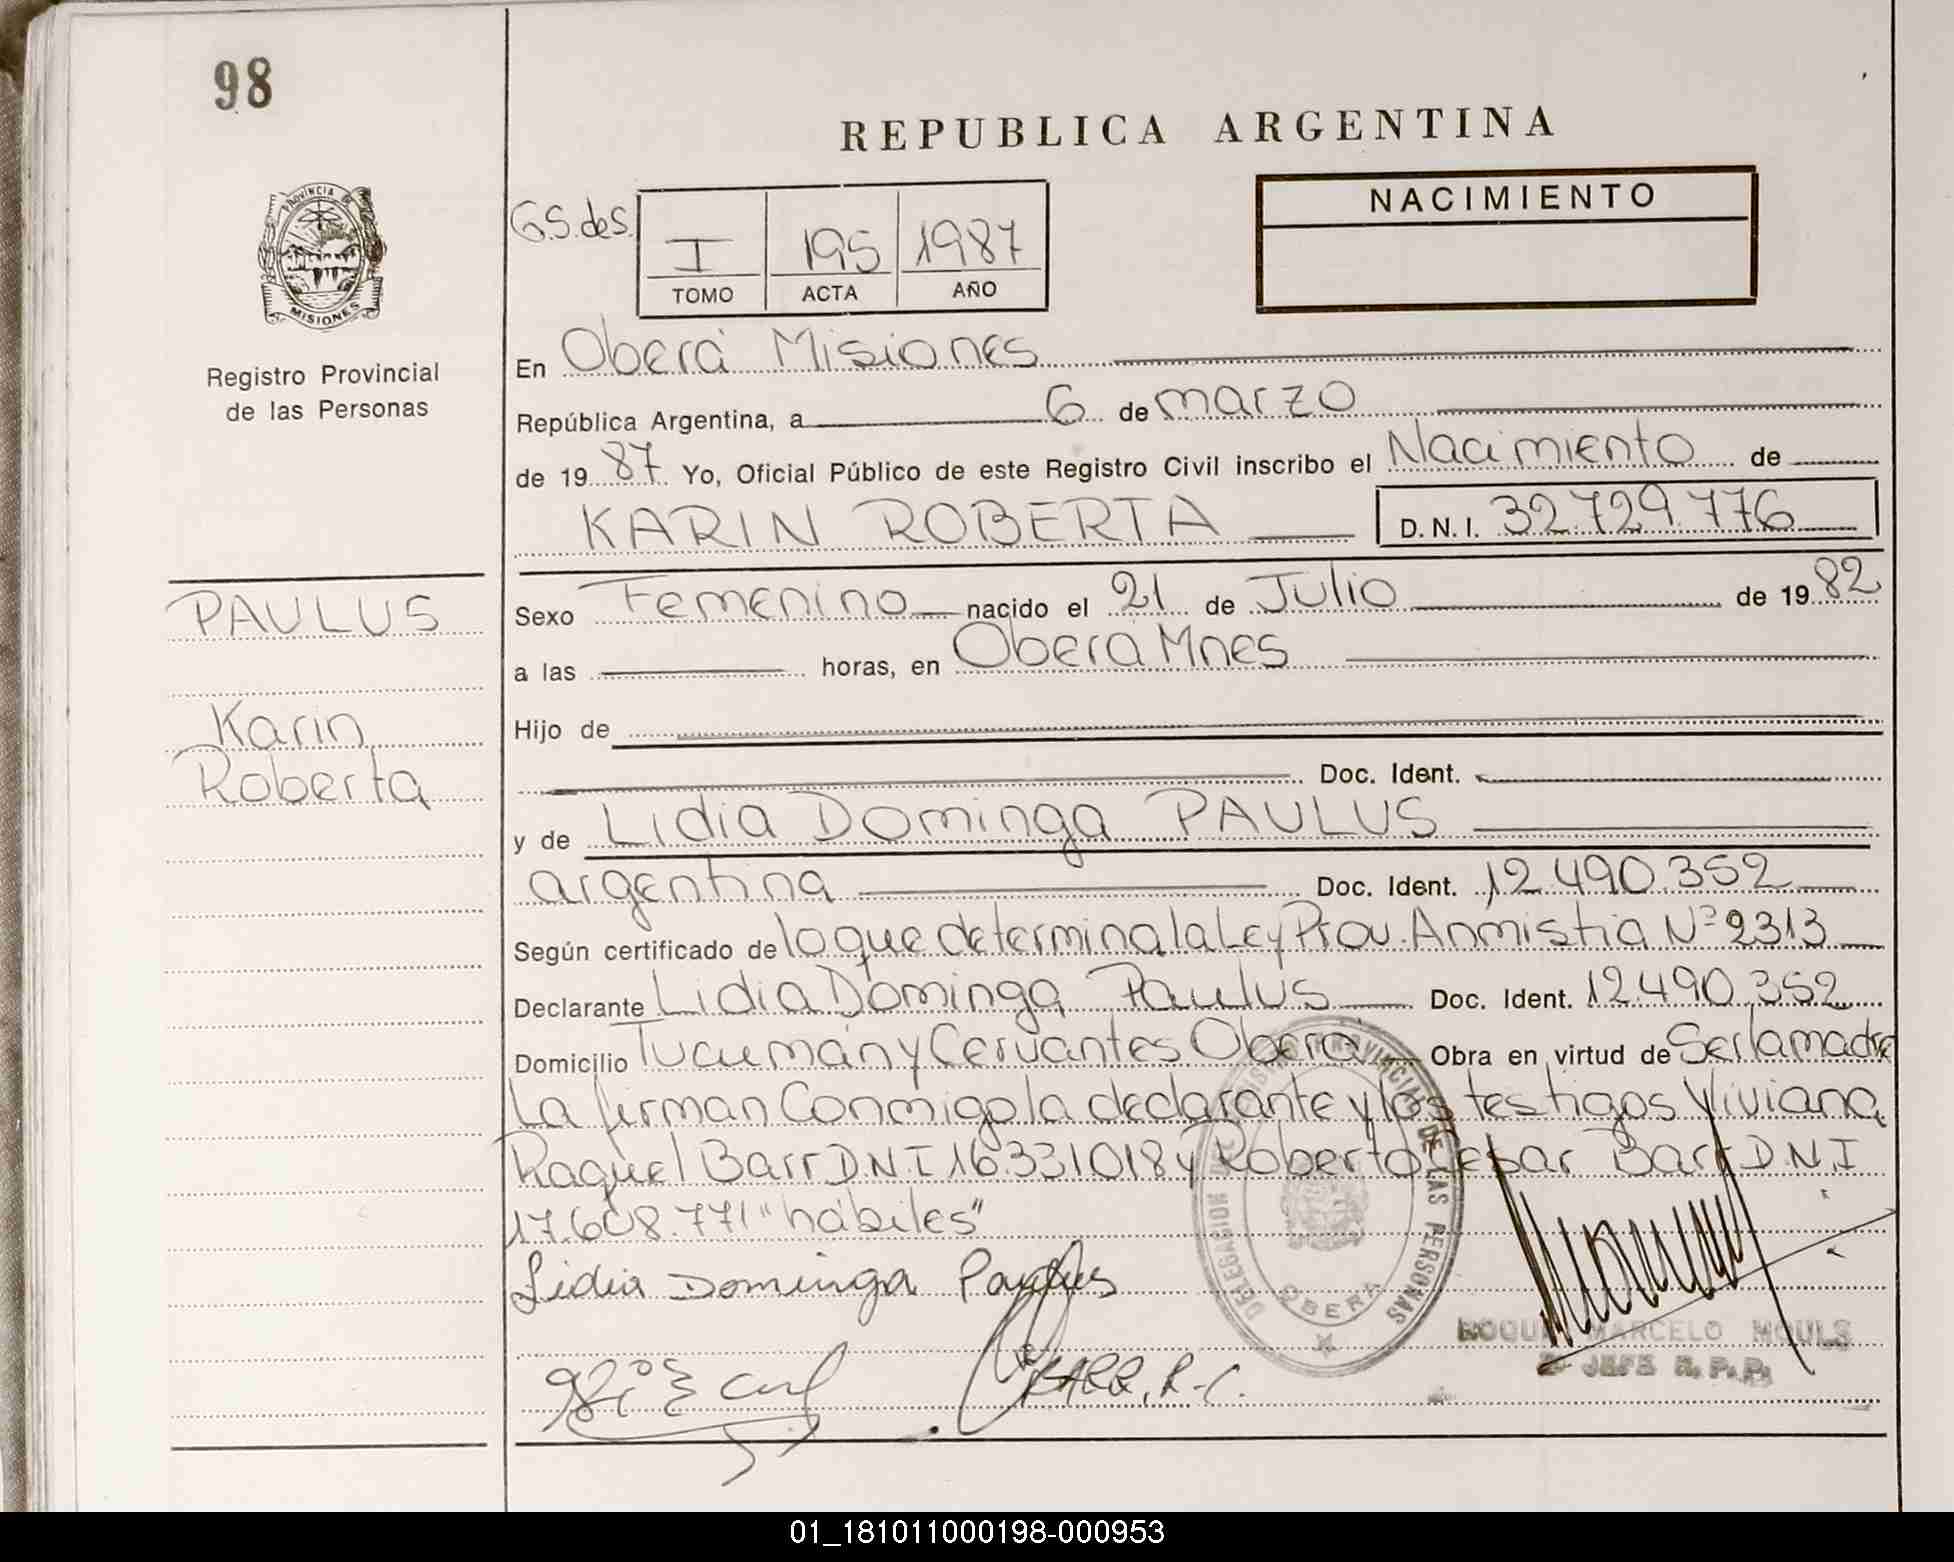 98
REPUBLICA ARGENTINA
PROVINCIA DE
MISIONES
Registro Provincial
de las Personas
G.S.deS.
I 195 1987
TOMO ACTA AÑO
NACIMIENTO
En Oberá Misiones
República Argentina, a 6 de marzo
de 19 87 Yo, Oficial Público de este Registro Civil inscribo el Nacimiento de
KARIN ROBERTA D.N.I. 32.729.776
PAULUS
Karin
Roberta
Sexo Femenino nacido el 21 de Julio de 19 82
a las horas, en Obera Mnes
Hijo de
Doc. Ident.
y de Lidia Dominga PAULUS
argentina Doc. Ident. 12.490.352
Según certificado de lo que determina la Ley Prov. Anmistia Nº 2313
Declarante Lidia Dominga Paulus Doc. Ident. 12.490.352
Domicilio Tucumán y Cervantes Oberá Obra en virtud de Ser la madre
La firman Conmigo la declarante y los testigos Viviana
Raquel Barr D.N.I 16.331.018 y Roberto Cesar Barr D.N.I
17.608.771 "hábiles"
Lidia Dominga Paulus
BARR, R-C.
DELEGACION DEL REGISTRO PROVINCIAL DE LAS PERSONAS
OBERA
ROQUE MARCELO MOULS
JEFE R.P.P.
01_181011000198-000953